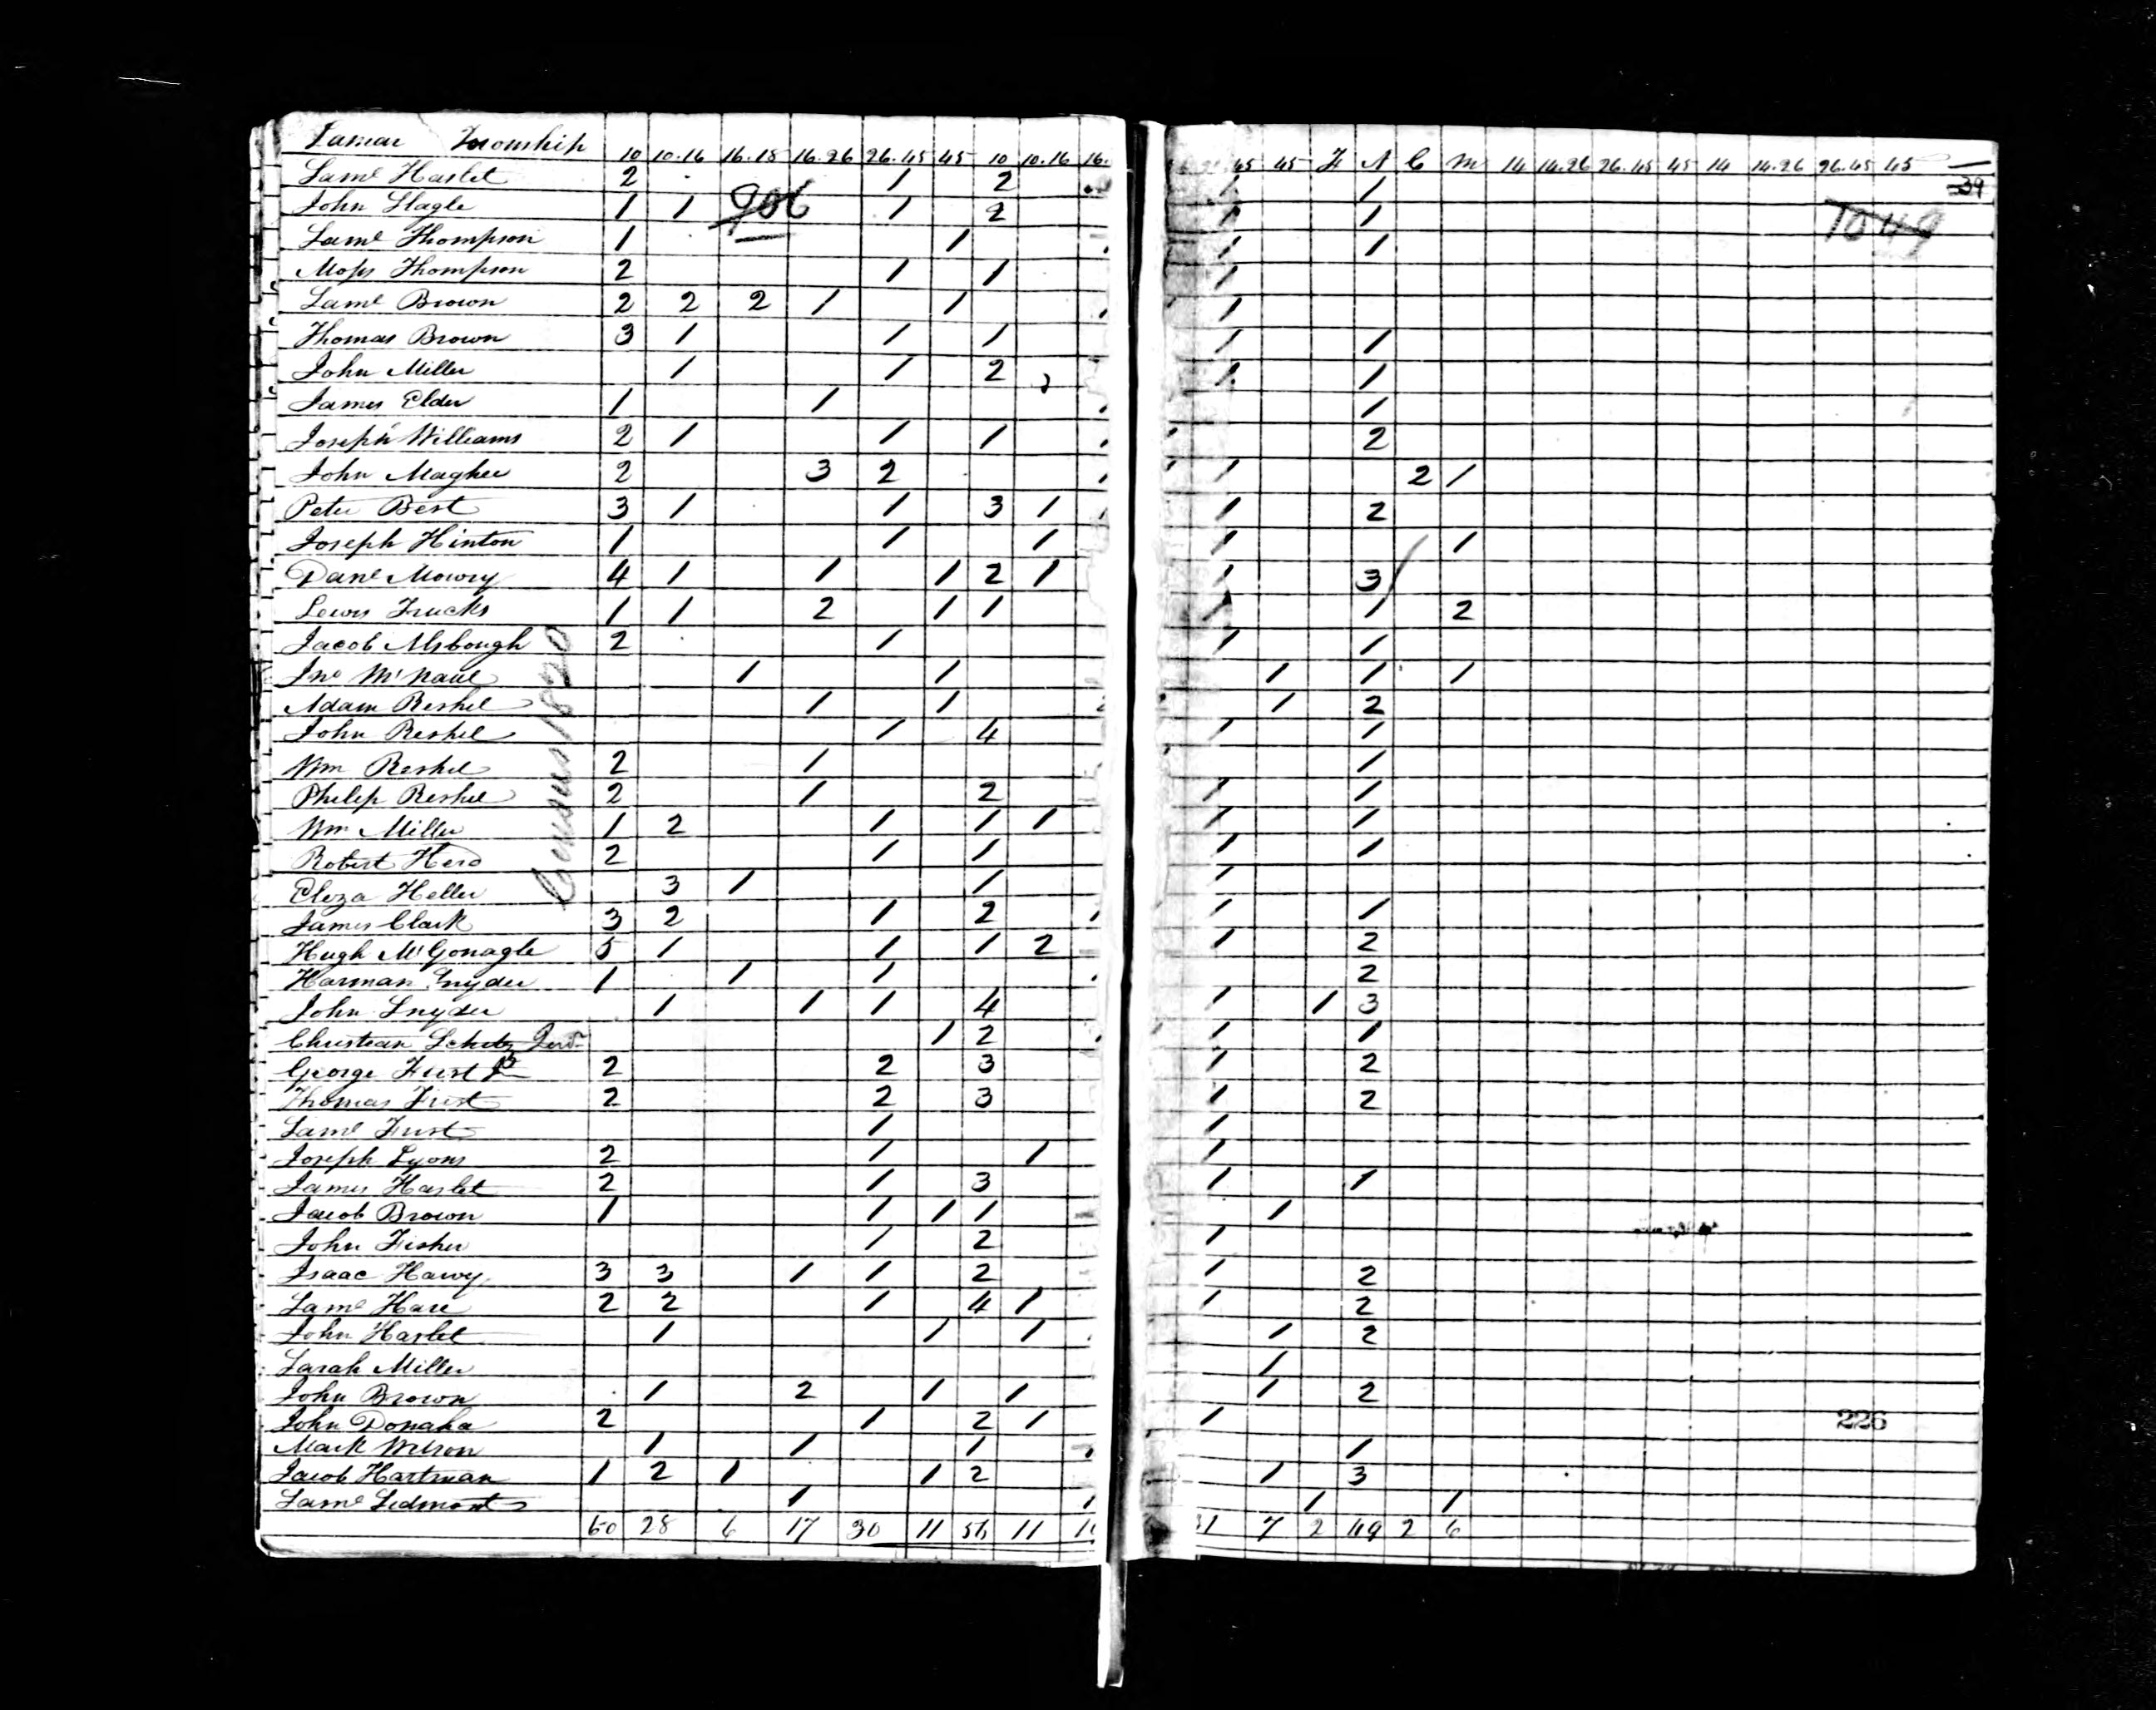 Lamar Township 10 10.16 16.18 16.26 26.45 45 10 10.16 16. 45 45 F A C M 14 14.26 26.45 45 14 14.26 26.45 45
39
Saml Haslet 2 1 2 1 1
John Slagle 1 1 1 2 1 1
906 1049
Saml Thompson 1 1 1 1
Moses Thompson 2 1 1 1
Saml Brown 2 2 2 1 1 1
Thomas Brown 3 1 1 1 1 1
John Miller 1 1 2 1 1
James Elder 1 1 1
Joseph Williams 2 1 1 1 2
John Maghee 2 3 2 1 2 1
Peter Best 3 1 1 3 1 1 2
Joseph Hinton 1 1 1 1 1
Danl Mowry 4 1 1 1 2 1 1 3
Lewis Trucks 1 1 2 1 1 1 1 2
Jacob 2 1 1 1
Jno McNaul 1 1 1 1 1
Adam Reshel 1 1 1 2
John Reshel 1 4 1 1
Wm Reshel 2 1 1
Philip Reshel 2 1 2 1 1
Wm Miller 1 2 1 1 1 1 1
Robert Herd 2 1 1 1 1
Census 1820
Heller 3 1 1 1
James Clark 3 2 1 2 1 1 1
Hugh McGonagle 5 1 1 1 2 1 2
Harman Snyder 1 1 1 2
John Snyder 1 1 1 4 1 1 3
Christian 1 2 1 1
George Furst 2 2 3 1 2
Thomas Furst 2 2 3 1 2
Saml Furst 1 1
Joseph Lyons 2 1 1 1
James Haslet 2 1 3 1 1
Jacob Brown 1 1 1 1 1
John Fisher 1 2 1
Isaac 3 3 1 1 2 1 2
Saml Hare 2 2 1 4 1 1 2
John Haslet 1 1 1 1 2
Sarah Miller 1
John Brown 1 2 1 1 1 2
John Donaha 2 1 2 1 1
226
Mark Wilson 1 1 1 1
Jacob Hartman 1 2 1 1 2 1 3
Saml 1 1 1 1
60 28 6 17 30 11 56 11 31 7 2 49 2 6